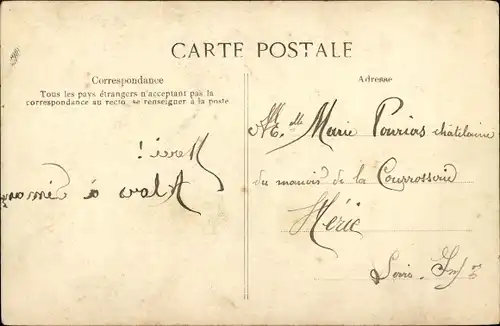 CARTE POSTALE
Correspondance
Tous les pays étrangers n'acceptant pas la
correspondance au recto, se renseigner à la poste
Adresse
Merci !
M.elle Marie Pouvias châtelaine
du manoir de la Courosserie
Héric
Loire Infre